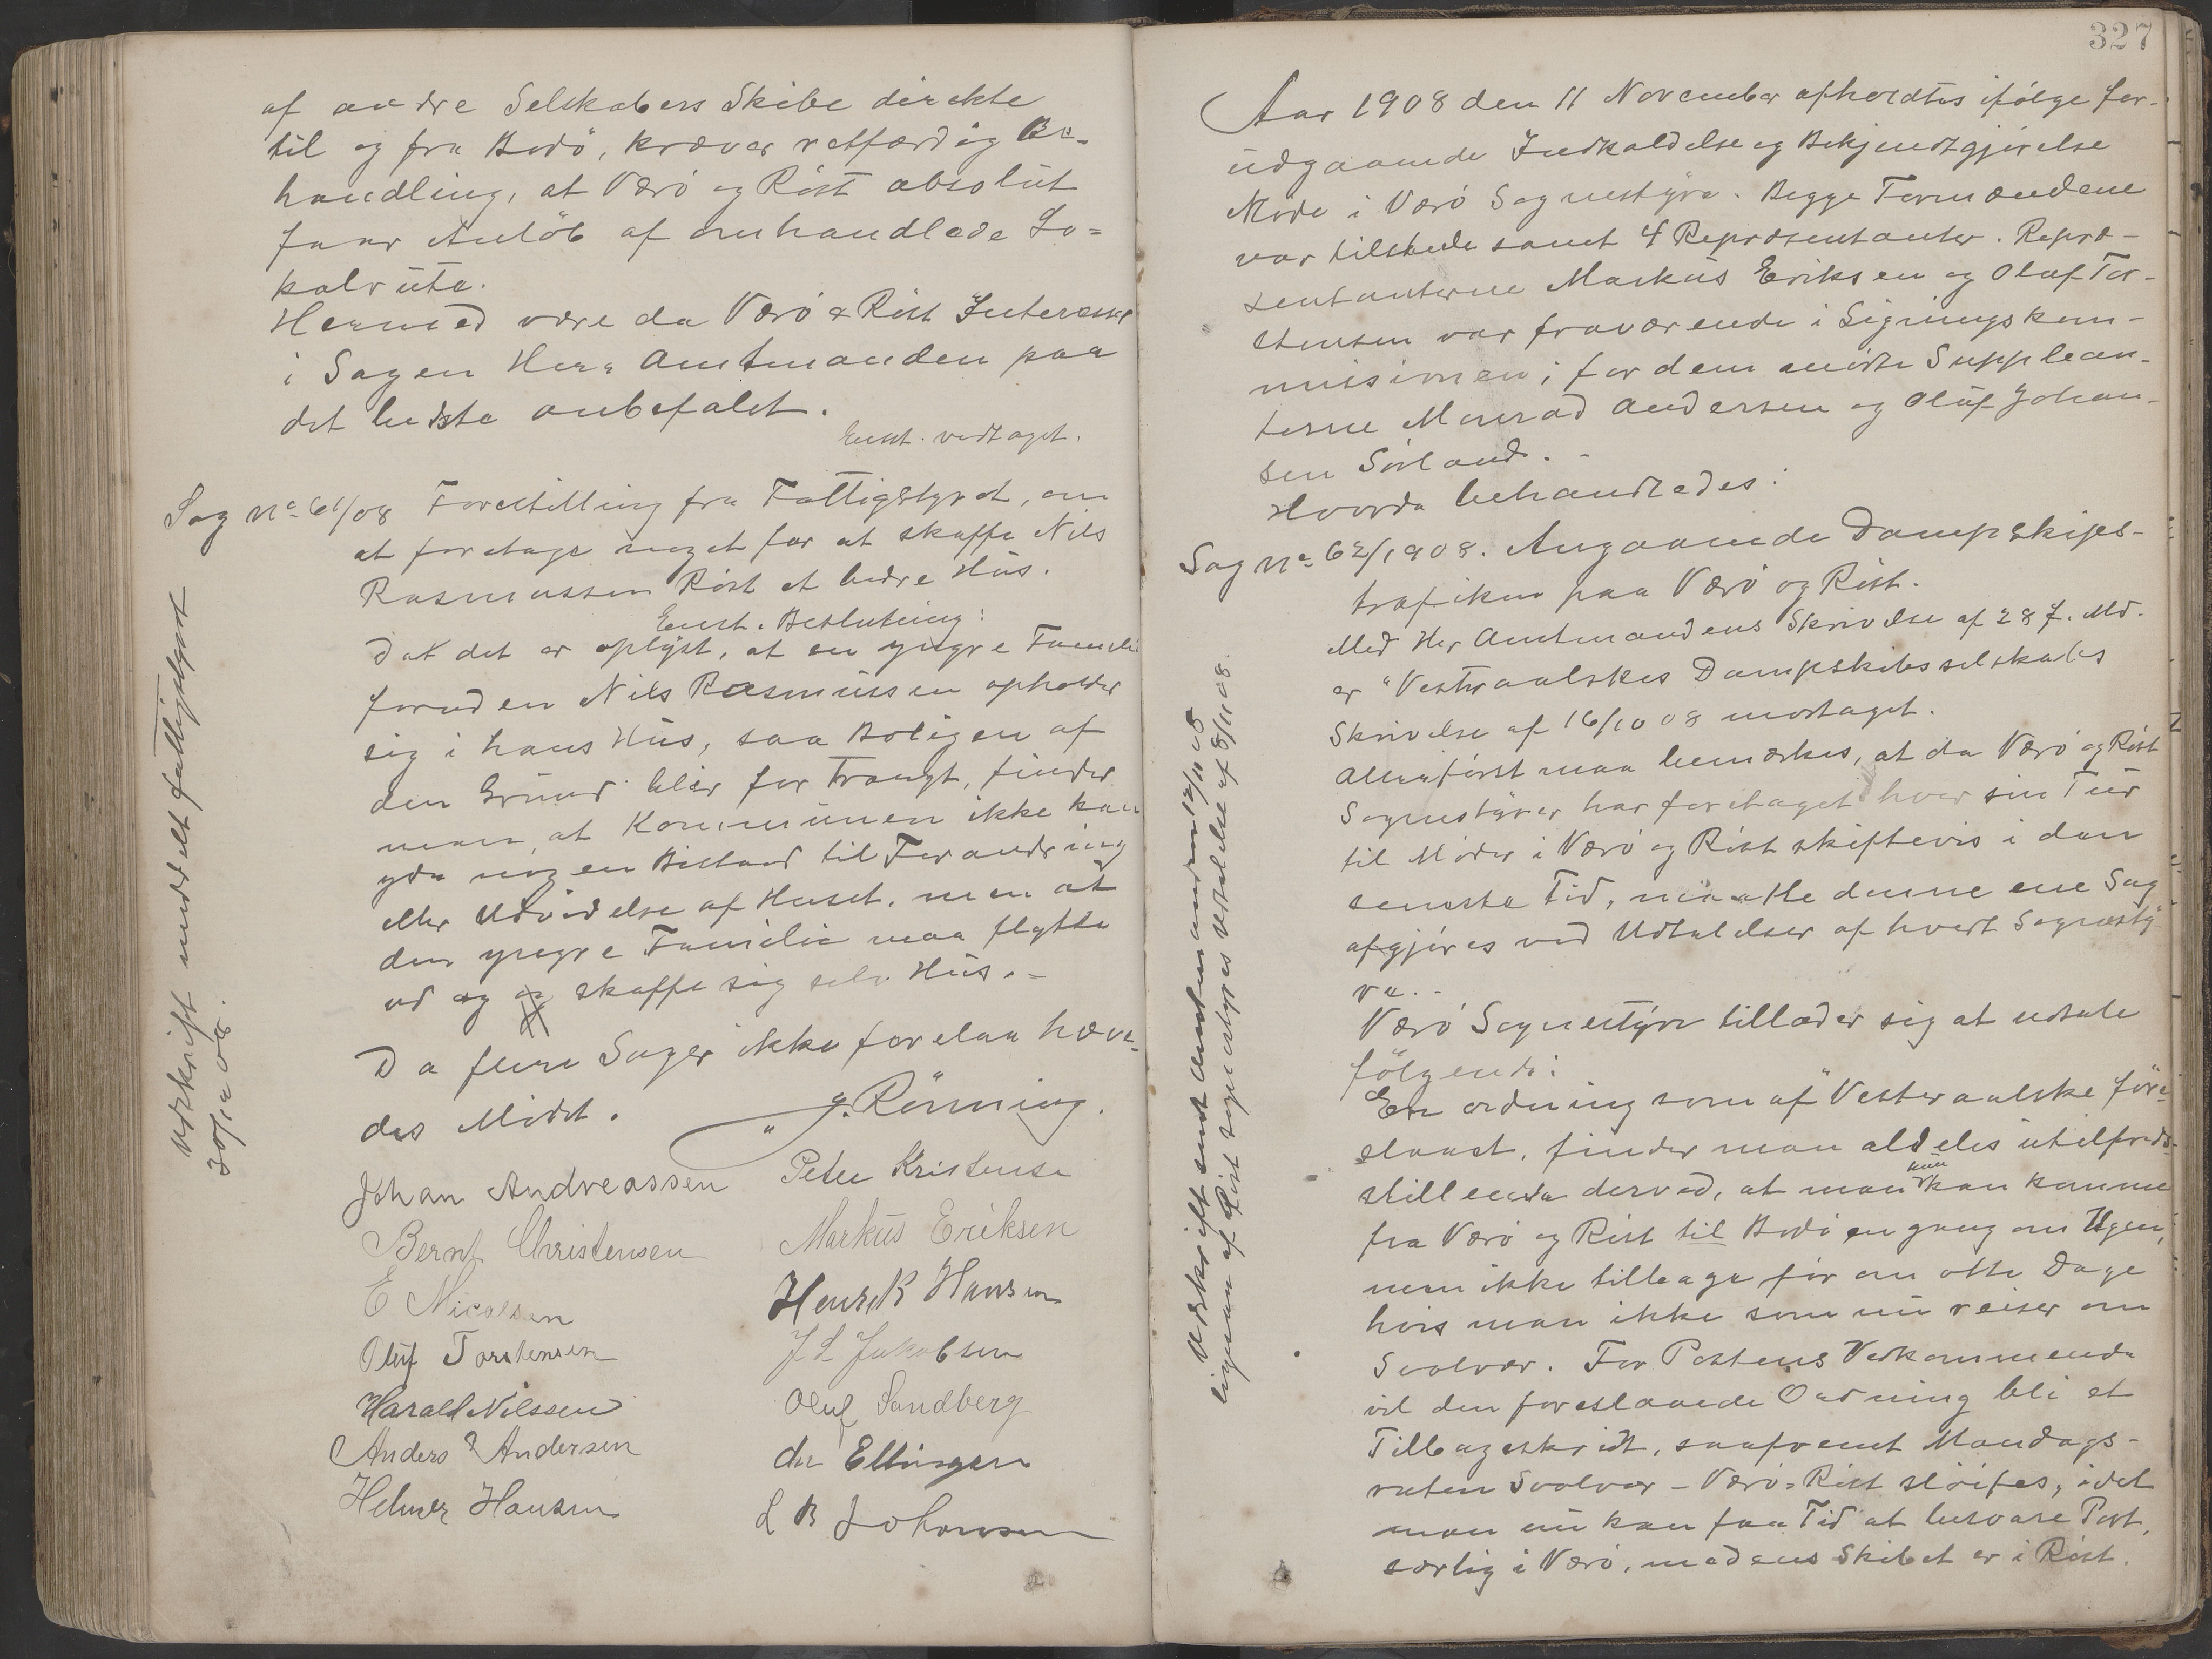 af andre Selskabers Skibe direkte
til og fra Bodö, kræver retfærdig Be-
handling, at Værö og Röst absolut
faar Anlöb af omhandlede Lo=
kalrute.
Hermed være da Værö & Röst Interesse
i Sagen Herr Amtmanden paa
det bedste anbefalet.
Enst. vedtaget.
Sag No 61/08 Forestilling fra Fattigstyret, om
at foretage noget for at skaffe Nils
Rasmussen Röst et bedre Hus.
Enst. Beslutning:
Da det er oplyst, at en yngre Familie
foruden Nils Rasmussen opholder
sig i hans Hus, saa Boligen af
den Grund blir for trangt, finder
man, at Kommunen ikke kan
yde nogen Bistand til Forandring
eller Udvidelse af Huset, men at
den yngre Familie maa flytte
ud og skaffe sig selv Hus.-
Da flere Sager ikke forelaa hæve-
des Mödet.
J. Rönning.
Johan Andreassen
Peter Kristensen
Bernt Christensen
Markus Eriksen
E Nicolsen
Henrik Hansen
Oluf Torstensen
J L Jakobsen
Harald Nilssen
Oluf Sandberg
Anders Andersen
Ellingsen
Helmer Hansen
L B Johansen
Udskrift meddelt fattigstyret
20/12 08.
327
Aar 1908 den 11 November afholdtes ifölge for-
udgaaende Indkaldelse og Bekjendtgjörelse
Möde i Værö Sognestyre. Begge Formændene
var tilstede samt 4 Repræsentanter. Repræ-
sentanterne Markus Eriksen og Oluf Tor-
stensen var fraværende i Ligningskom-
missionen; for dem mödte Supplean-
terne Monrad Andersen og Oluf Johan-
sen Sörland.-
Hvorda behandledes:
Sag No 62/1908. Angaaende Dampskips-
trafiken paa Værö og Röst.
Med Hr Amtmandens Skrivelse af 28 f. Md.
er "Vesteraalskes Dampskibsselskabs
Skrivelse af 16/10 08 modtaget.
Allerförst maa bemærkes, at da Værö og Röst
Sognestyrer har foretaget hver sin Tur
til Möder i Værö og Röst skiftevis i den
seneste Tid, maatte denne ene Sag
afgjöres ved Udtalelser af hvert Sognesty
re.-
Værö Sognestyre tillader sig at udtale
fölgende:
En ordning som af "Vesteraalske" före-
slaaet, finder man aldeles utilfreds-
stillende derved, at man kun kan komme
fra Værö og Röst til Bodö en gang om Ugen,
men ikke tilbage för om otte Dage
hvis man ikke som nu reiser om
Svolvær. For Postens Vedkommende
vil den foreslaaede Ordning bli et
Tilbageskridt, saafremt Mandags-
ruten Svolvær - Værö - Röst slöifes, idet
man nu kan faa Tid at besvare Post,
særlig i Værö, medens Skibet er i Röst.
Udskrift sendt Amtmanden 12/11 08
ligesaa af Röst sognestyres Udtalelse af 8/11 08.